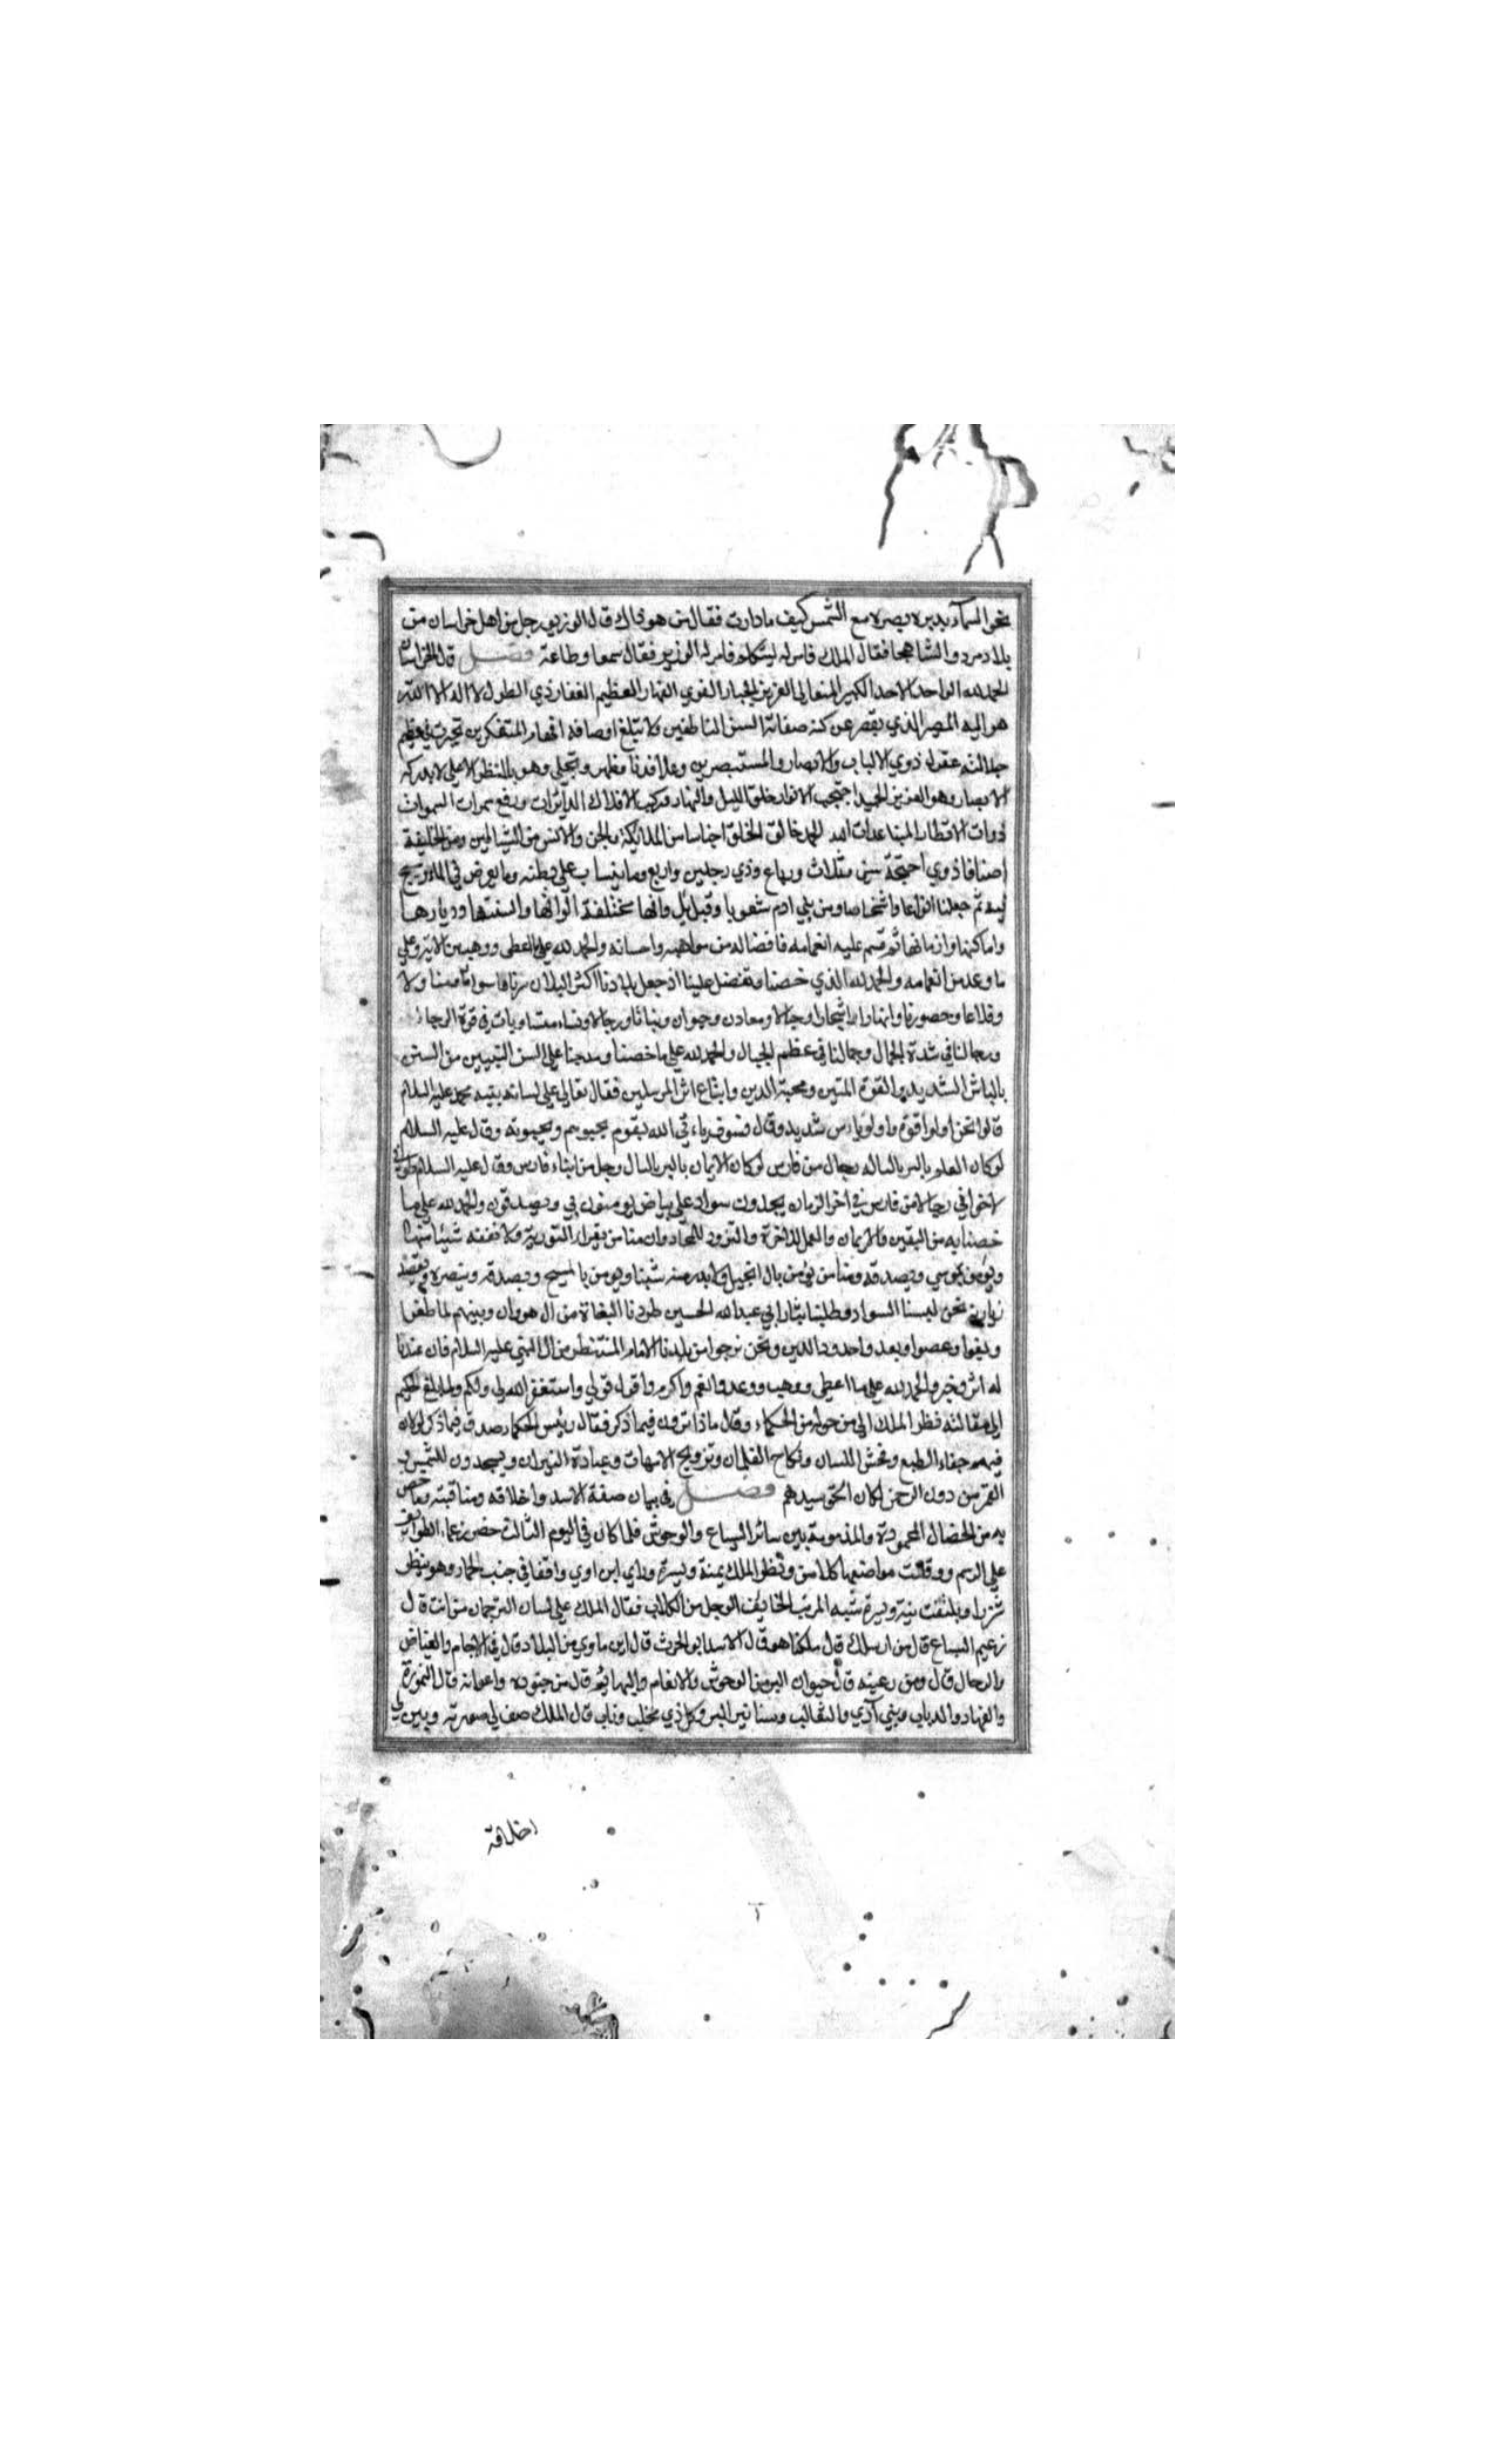 نحو السمآء يديره بصره مع الشمس كيف ما دارت فقال من هو ذاك قال الوزير رجل من اهل خراسان من
بلاد مرو الشاهجا فقال الملك فامر له ليتكلم فامر له الوزير فقال سمعا وطاعة فصل قال الخراسان
الحمد لله الواحد الاحد الكبير المتعالي العزيز الجبار القوي القهار العظيم الغفار ذي الطول لا اله الا الله
هو اليه المصير الذي يقصر عن كنه صفاته السن الناطقين ولا يبلغ اوصافه افهام المتفكرين تحيرت في عظيم
جلالته عقول ذوي الالباب والابصار والمستبصرين وعلا فدنا وظهر وتجلى وهو بالمنظر الاعلى لا يدركه
الابصار وهو العزيز الحميد احتجب الانوار خلق الليل والنهار مركب الافلاك الدآئرات ورفع سمرات السموات
ذوات الاقطار المتباعدات الحمد خالق الخلق اجناسا من الملائكة والجن والانس من الشياطين ومن الخليقة
اصنافا ذوي اجنحة مثنى مثلاث ورباع وذي رجلين واربع وما ينساب على بطنه وما يعوض في الماء ويسبح
فيه ثم جعلنا انواعا واشخاصا ومن بني ادم شعوبا وقبايل وانها مختلفة الوانها والسنتها وديارها
واماكنها وازمانها ثم قسم عليه انعامه فافضاله من مواهبه واحسانه والحمد لله على ما اعطى ووهب من الائه وعلى
ما وعد من انعامه والحمد لله الذي خصنا وتفضل علينا اذ جعل بلادنا اكثر البلدان
وقلاعا وحصونا وانهارا واشجارا وجبالا ومعادن وحيوان ونباتا ورجالا ونساء متساويات في قوة الرجال
ورجالنا في شدة الجمال وجمالنا في عظم الجبال والحمد لله على ما خصنا ومدحنا على السن النبيين من السنن
بالباش الشديد والقوة المتين ومحبة الدين واتباع اثر المرسلين فقال تعالى على لسانه بنبيه محمد عليه السلام
قالوا نحن اولوا قوة واولوا باس شديد وقال فسوف ياتي الله بقوم يحبوهم ويحبونه وقال عليه السلام
لو كان العلم بالبر باله رجال من فارس لو كان الايمان بالبر بالسال رجل من ابناء فارس وقال عليه السلام طوبى
لاخواني رجالا من فارس في اخر الزمان يجدون سواد على بياض يومنون بي ويصدقون والحمد لله على ما
خصنا به من اليقين والايمان والعمل للاخرة والتزود للمعاد وان منا من يقرا التورية ولا يفقه شيئا منها
ويؤمن بموسي ويصدقه ومنا من يؤمن بال انجيل ولا يدر منه شيئا ويومن بالمسيح ويصدقه وينصره ويعتضد
نحن لبسنا السواد وطلبنا بثار ابي عبد الله الحسين طردنا البغاة من ال مروان وبينهم لما طغوا
وبغوا وعصوا وبعد واحدود الدين ونحن نرجوا من بلدنا الامام المنتظر من ال النبي عليه السلام فان عندنا
له اثر وخير والحمد لله على ما اعطى ووهب ووعد وانعم واكرم واقول قولي واستغفر الله لي ولكم ولما بلغ الحكيم
الى مقالته فنظر الملك الى من حوله من الحكماء وقال ماذا ترون فيما ذكر فقال رئيس الحكماء صدق فيما ذكر لولا ان
فيهم جفاء الطبع وفحش اللسان ونكاح الغلمان وتزويج الامهات وعبادة النيران ويسجدون للشمس و
القمر من دون الرحمن لكان الحق سيدهم فصل في بيان صفة الاسد واخلاقه ومناقبته وما خص
به من الخصال المحمودة والمذمومة بين سائر السباع والوحوش فلما كان في اليوم الثالث حضر زعماء الطوائف
على الرسم ووقفت مواضعها كلامس ونظر الملك يمنة ويسرة وراى ابن اوي واقفا في جنب الحمار وهو ينظر
شزرا ويلتفت يمنة ويسرة شبه المريب الخايف الوجل من الكلاب فقال الملك على لسان الترجمان من انت قال
زعيم السباع قال من ارسلك قال ملكنا هو قال الاسد ابو الحرث قال اين ماوي من البلاد قال في الاجام والغياض
والدحال قال ومن رعيته قال حيوان البر من الوحوش والانعام والبهائم قال من جنوده واعوانه قال النمورة
والفهاد والدباب وبني آدي والثعالب وسنانير البر وكل ذي مخلب وناب قال الملك صف لي صورته وبين لي
اخلاقه